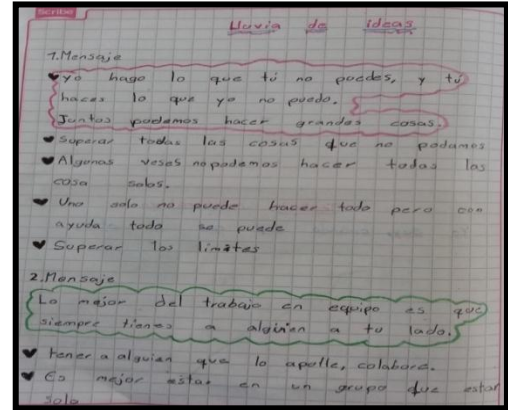 Scribe
Lluvia de ideas
1.Mensaje
Yo hago lo que tú no puedes, y tú
haces lo que yo no puedo.
Juntas podemos hacer grandes cosas.
Superar todas las cosas que no podamos
Algunas veses no podemos hacer todas las
cosa solas.
Uno solo no puede hacer todo pero con
ayuda todo se puede
Superar los limites
2.Mensaje
Lo mejor del trabajo en equipo es que
siempre tienes a alguien a tu lado.
tener a alguien que lo apolle, colabore.
Es mejor estar en un grupo que estar
solo